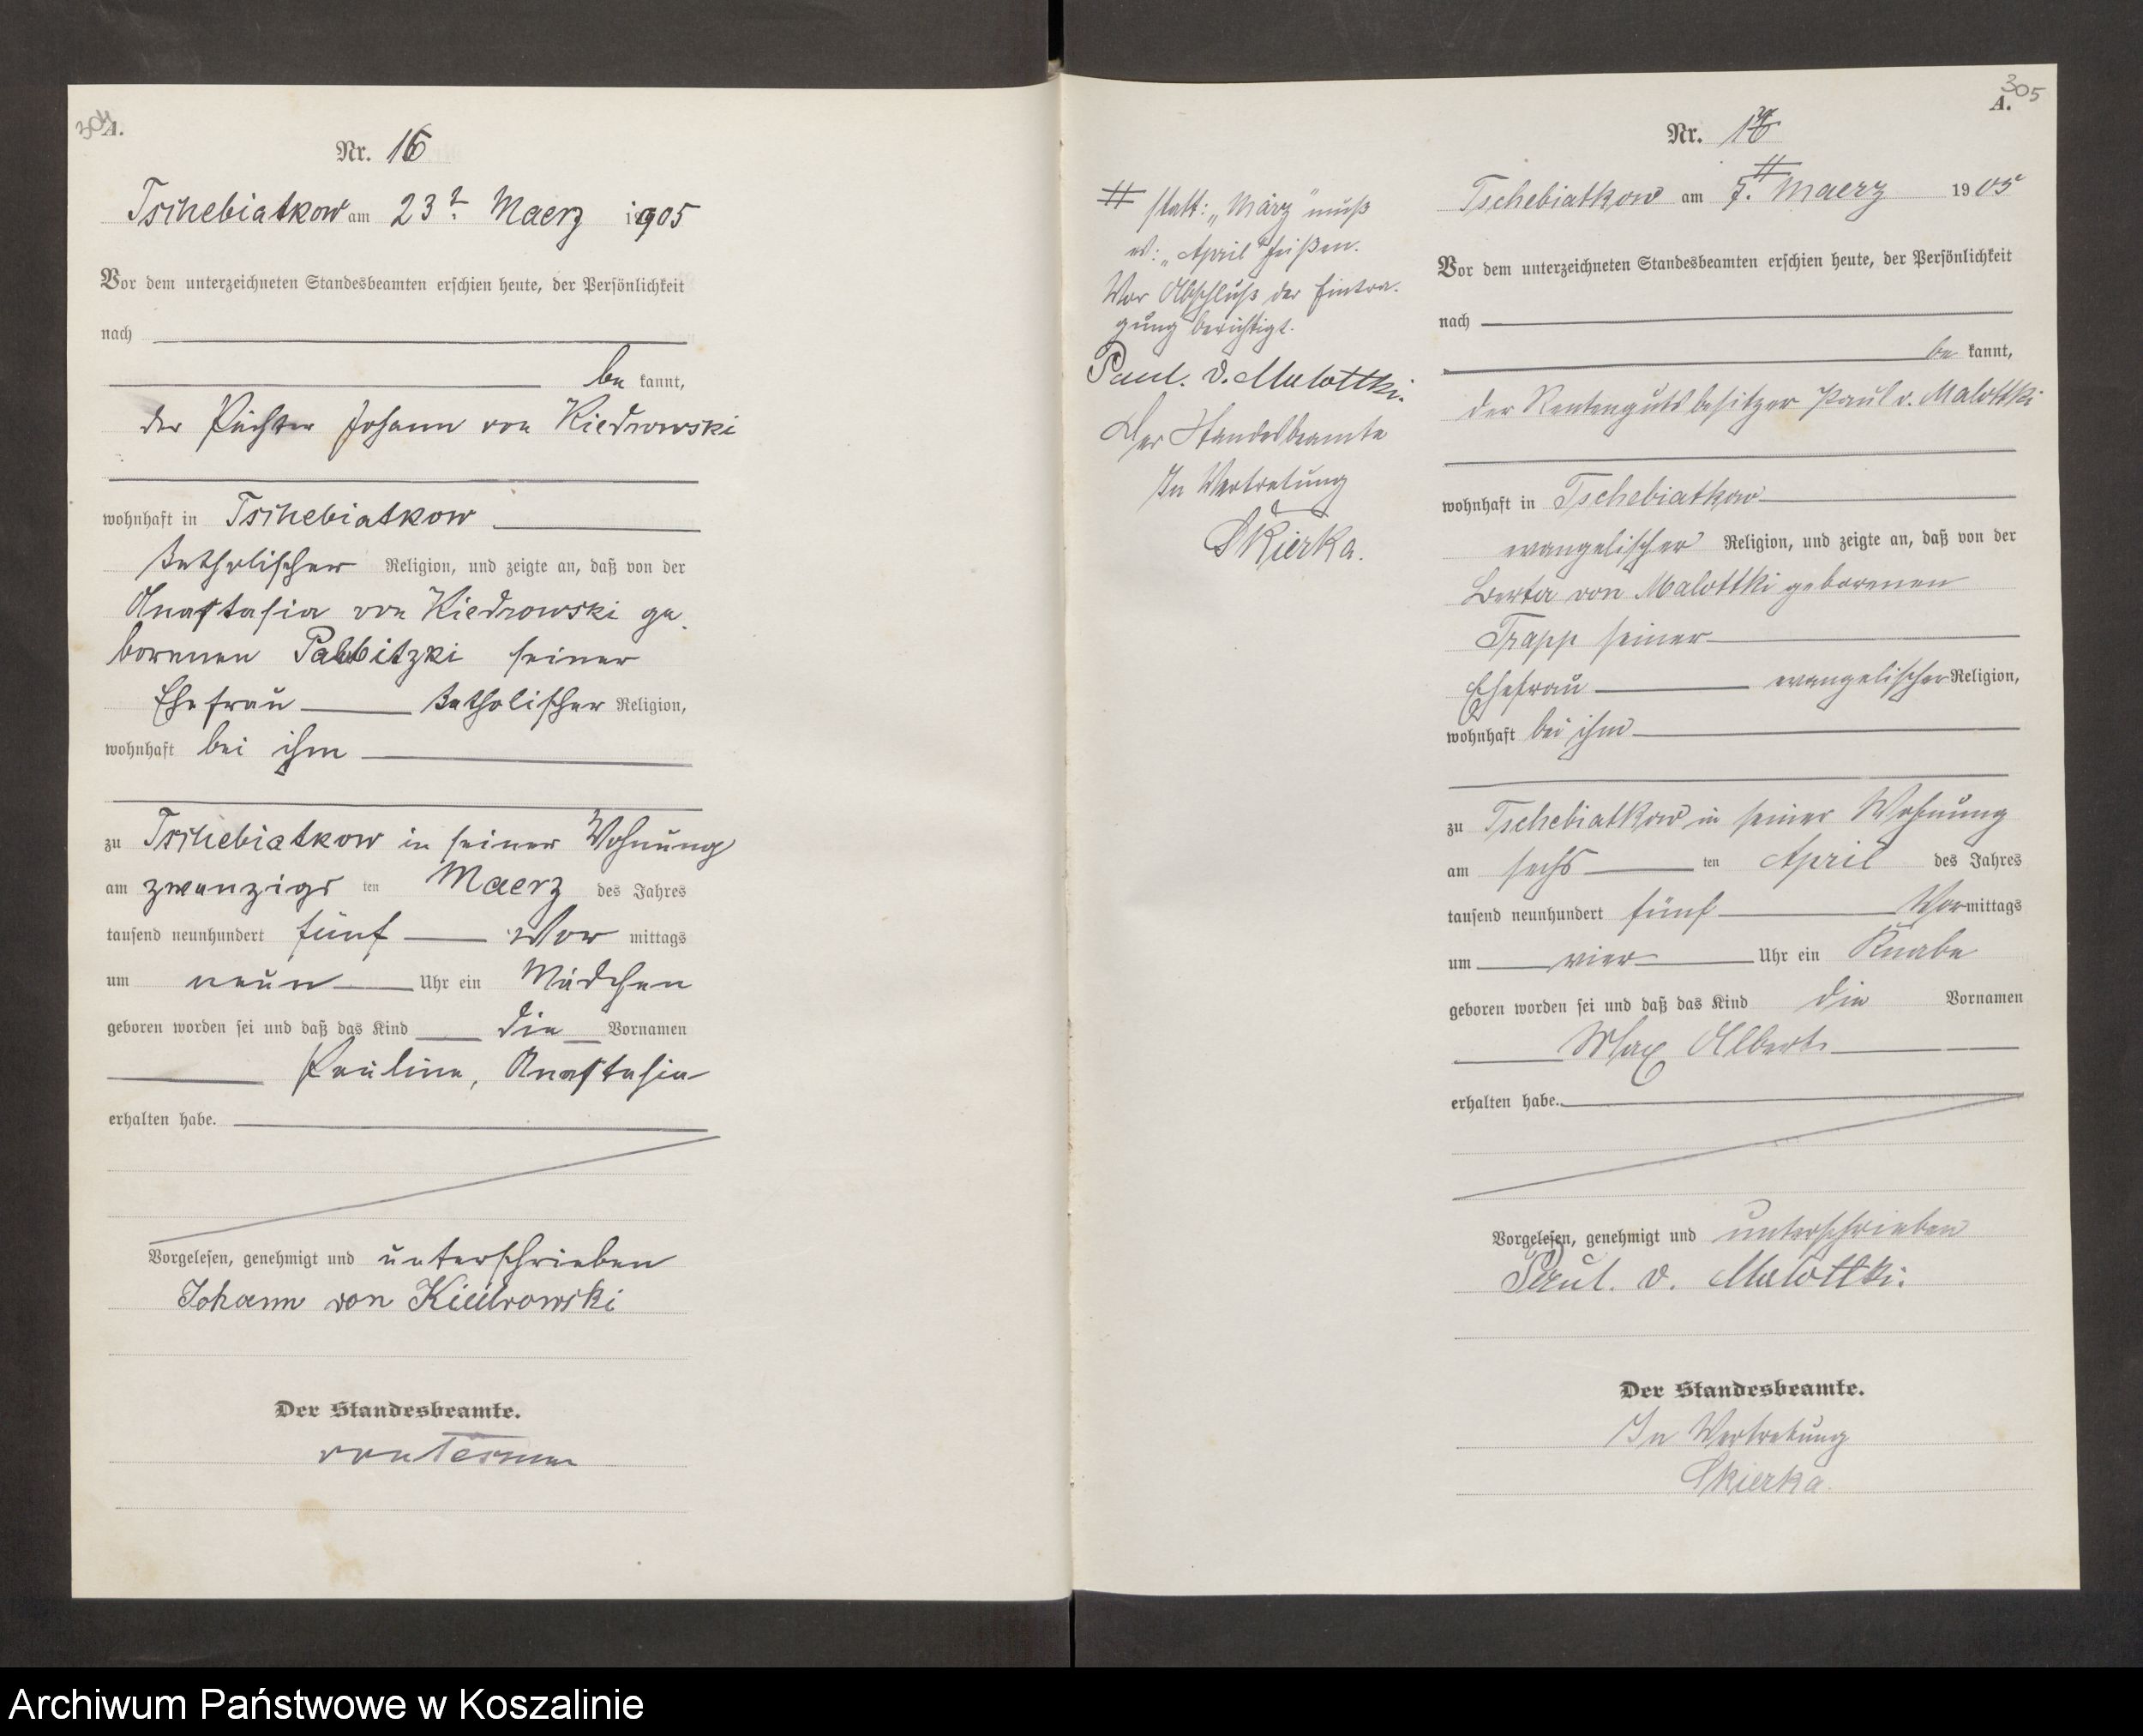 304
A.
Nr. 16
Tschebiatkow am 23ᵗ. Maerz 1905
Vor dem unterzeichneten Standesbeamten erschien heute, der Persönlichkeit
nach
be kannt,
der Pächter Johann von Kiedrowski
wohnhaft in Tschebiatkow
katholischer Religion, und zeigte an, daß von der
Anastasia von Kiedrowski ge-
borenen Palubitzki seiner
Ehefrau katholischer Religion,
wohnhaft bei ihm
zu Tschebiatkow in seiner Wohnung
am zwanzigs ten Maerz des Jahres
tausend neunhundert fünf Vor mittags
um neun Uhr ein Mädchen
geboren worden sei und daß das Kind die Vornamen
Pauline, Anastasia
erhalten habe.
Vorgelesen, genehmigt und unterschrieben
Johann von Kiedrowski
Der Standesbeamte.
305
A.
Nr.
Tschebiatkow am 7. Maerz 1905
# statt: „März" muß
es: „April" heißen.
Vor Abschluß der Eintra-
gung berichtigt.
Paul. v. Malottki.
Der Standesbeamte
In Vertretung
Skierka.
Vor dem unterzeichneten Standesbeamten erschien heute, der Persönlichkeit
nach
be kannt,
der Rentengutsbesitzer Paul v. Malottki
wohnhaft in Tschebiatkow
evangelischer Religion, und zeigte an, daß von der
Berta von Malottki geborenen
Trapp seiner
Ehefrau evangelischer Religion,
wohnhaft bei ihm
zu Tschebiatkow in seiner Wohnung
am sechs ten April des Jahres
tausend neunhundert fünf Vormittags
um vier Uhr ein Knabe
geboren worden sei und daß das Kind die Vornamen
Max Albert
erhalten habe.
Vorgelesen, genehmigt und unterschrieben
Paul. v. Malottki.
Der Standesbeamte.
In Vertretung
Skierka.
Archiwum Państwowe w Koszalinie